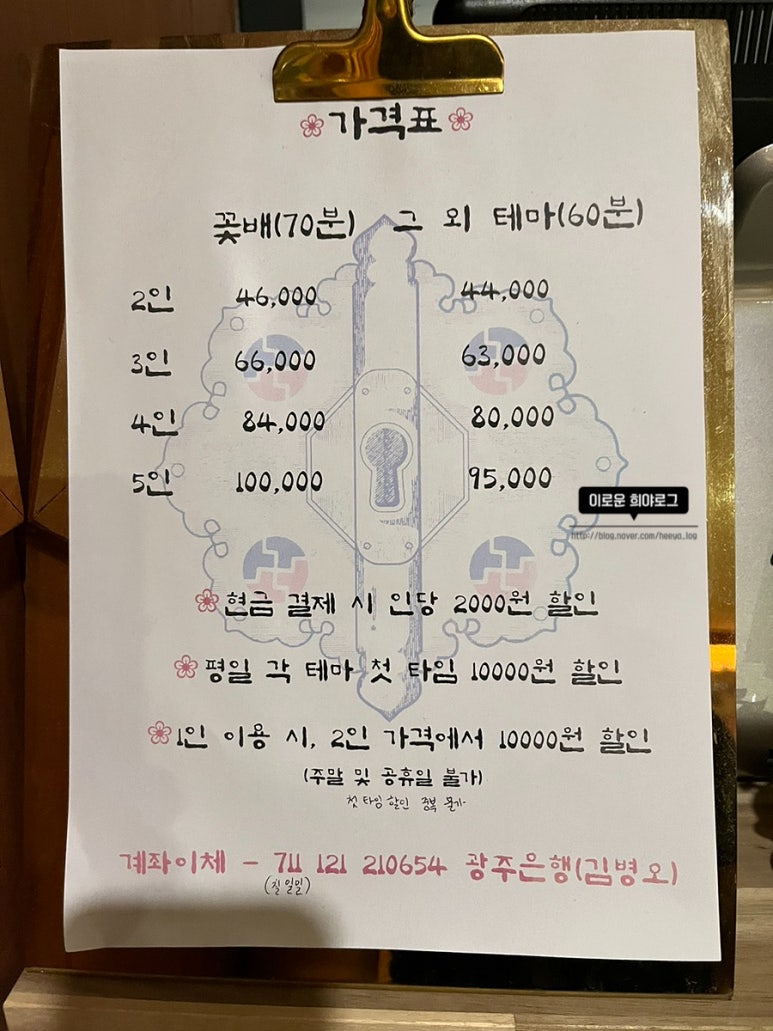 가격표
꽃배(70분) 그 외 테마(60분)
2인 46,000 44,000
3인 66,000 63,000
4인 84,000 80,000
5인 100,000 95,000
이로운 희야로그
http://blog.naver.com/heeya_log
현금 결제 시 인당 2000원 할인
평일 각 테마 첫 타임 10000원 할인
1인 이용 시, 2인 가격에서 10000원 할인
(주말 및 공휴일 불가)
첫 타임 할인 중복 불가
계좌이체 - 711 121 210654 광주은행(김병오)
(칠일일)